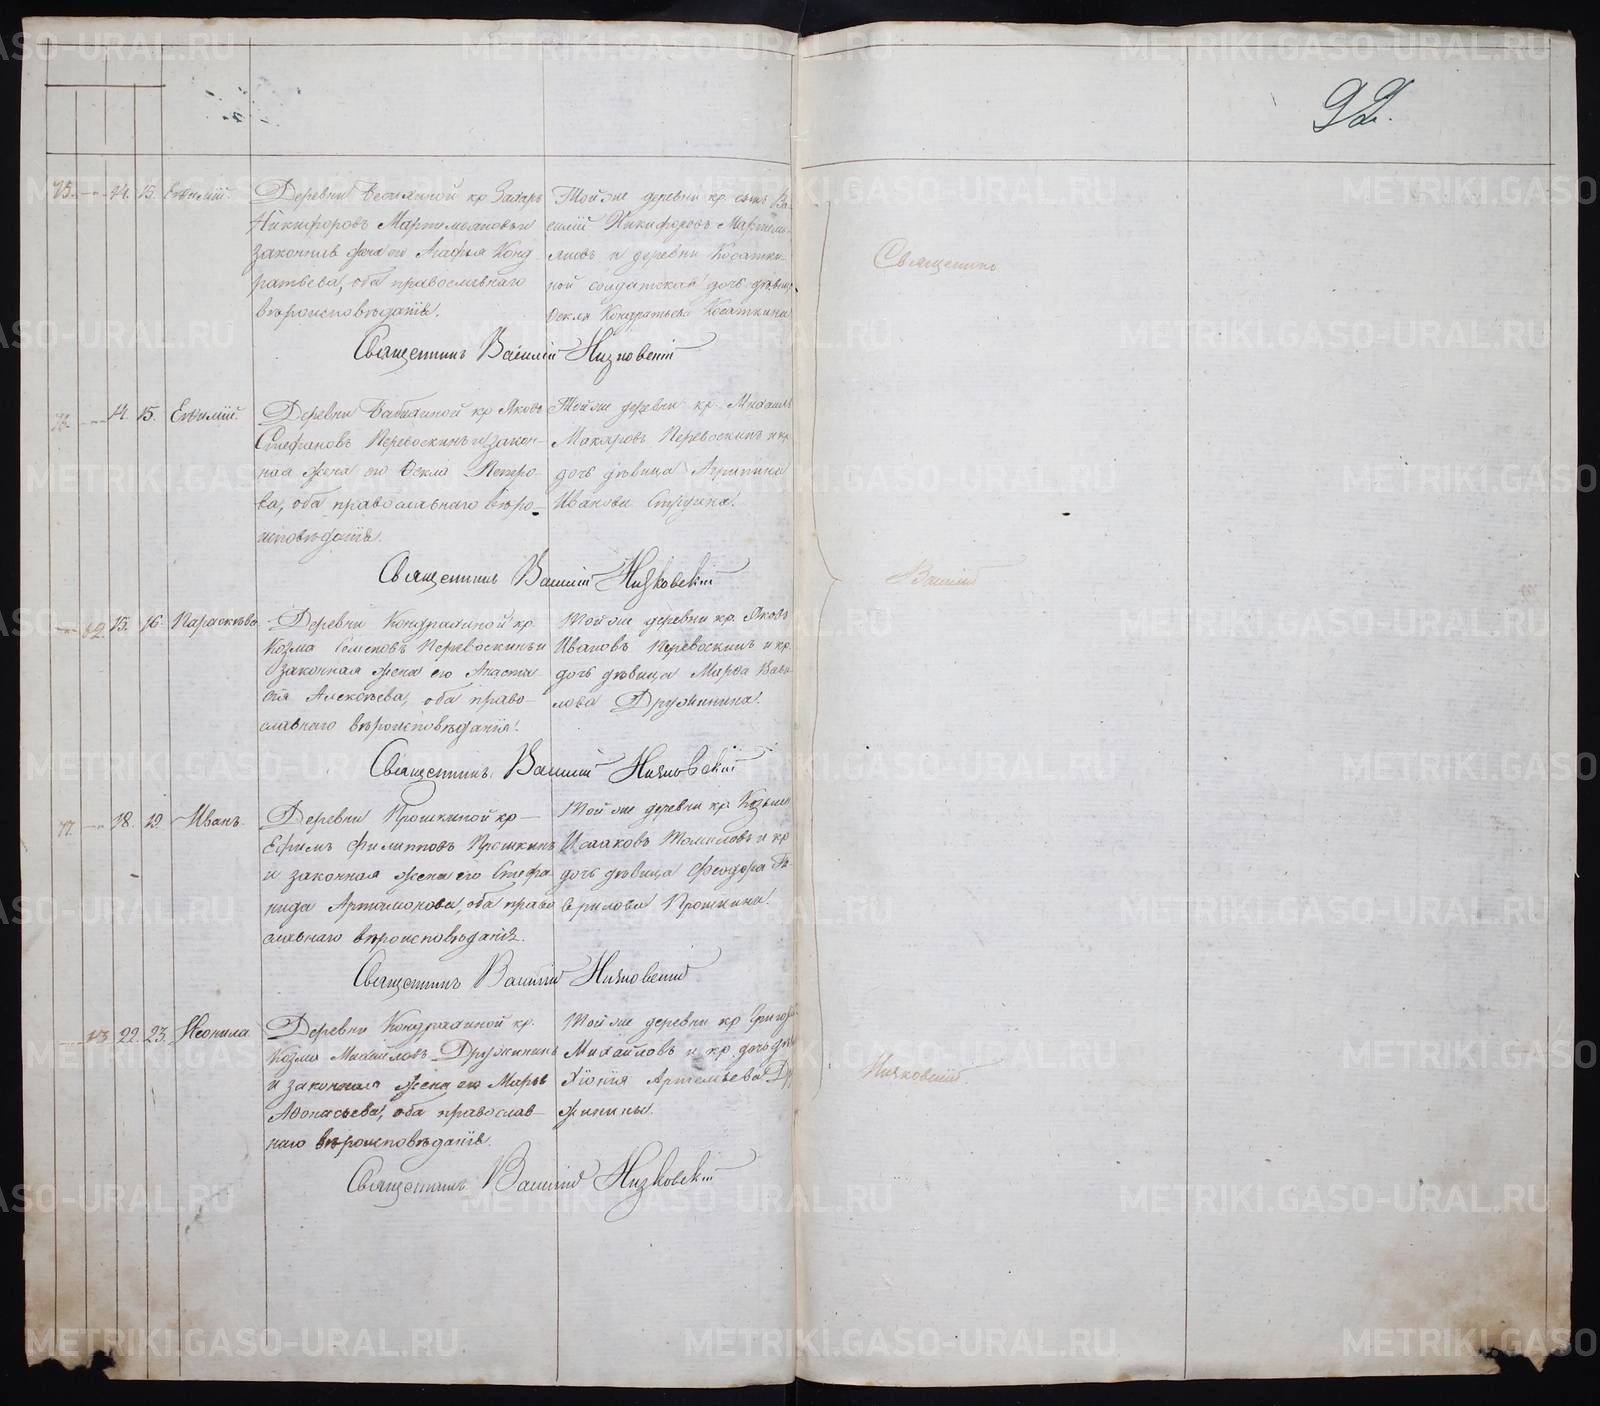 92.
75. 14. 15. Евѳимій.
Деревни кр. Захаръ
Никифоровъ Мартемьяновъ и
законная жена его Агафья Конд-
ратьева, оба православнаго
вѣроисповѣданія.
Тойже деревни кр. сынъ Ва-
силій Никифоровъ Мартемь-
яновъ и деревни Косатки-
ной солдатская дочь дѣвица
Ѳекла Кондратьева Косаткина
Священникъ Василій Низковскій
76. 14. 15. Евѳимій.
Деревни Бабихиной кр. Яковъ
Стефановъ Перевоскинъ и закон-
ная жена его Ѳекла Петро-
ва, оба православнаго вѣро-
исповѣданія.
Тойже деревни кр. Михаилъ
Макаровъ Перевоскинъ и кр.
дочь дѣвица Агрипина
Иванова
Священникъ Василій Низковскій
62 15. 16. Параскѣва
Деревни Кондрахиной кр.
Козма Семеновъ Перевоскинъ и
законная жена его Анаста-
сія Алексѣева, оба право-
славнаго вѣроисповѣданія.
Тойже деревни кр. Яковъ
Ивановъ Перевоскинъ и кр.
дочь дѣвица Марѳа Вави-
лова Дружинина.
Священникъ Василій Низковскій
77. 18. 19. Иванъ
Деревни Прошкиной кр.
Ефимъ Филипповъ Прошкинъ
и законная жена его Стефа-
нида Артамонова, оба право-
славнаго вѣроисповѣданія.
Тойже деревни кр. Козьма
Исааковъ Томиловъ и кр.
дочь дѣвица Феодора Га-
врилова Прошкина.
Священникъ Василій Низковскій
63 22. 23. Неонила
Деревни Кондрахиной кр.
Козма Михайловъ Дружининъ
и законная жена его Марья
Аѳонасьева, оба православ-
наго вѣроисповѣданія.
Тойже деревни кр. Григорій
Михайловъ и кр. дочь дѣв.
Хіонія Артемьева Дру-
жинины.
Священникъ Василій Низковскій
Священникъ
Василій
Низковскій
METRIKI.GASO-URAL.RU